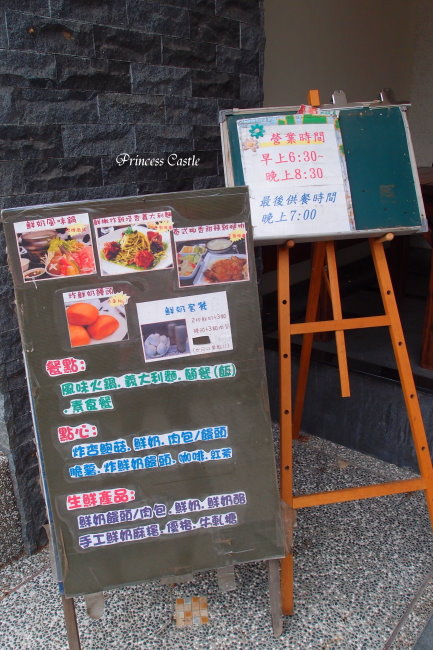 Princess Castle
營業時間
早上6:30~
晚上8:30
最後供餐時間
晚上7:00
鮮奶風味鍋
鮮嫩炸雞塊青義大利麵
炸鮮奶饅頭
鮮奶套餐
餐點:
風味火鍋.義大利麵.簡餐(飯)
.素食餐
點心:
炸杏鮑菇.鮮奶.肉包/饅頭
脆薯.炸鮮奶饅頭.咖啡.紅茶
生鮮產品:
鮮奶饅頭/肉包.鮮奶.鮮奶酪
手工鮮奶麻糬.優格.牛軋糖